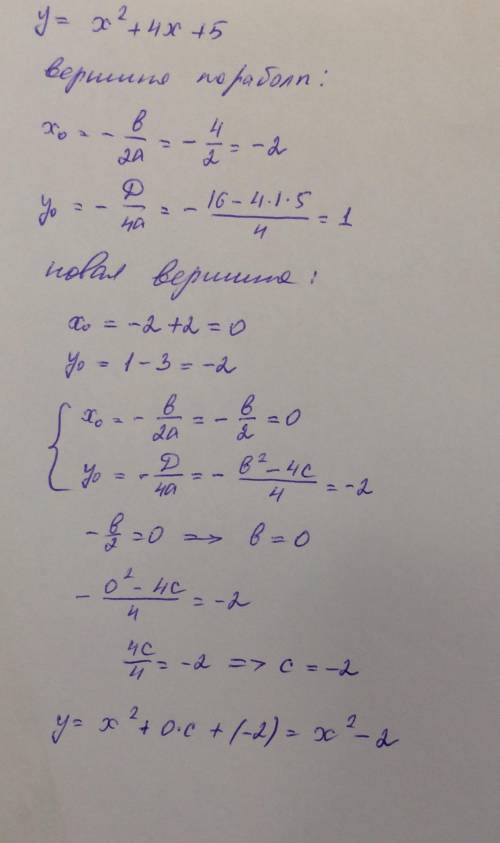 y = x² + 4x + 5
вершина параболы:
x₀ = - в/2a = - 4/2 = -2
y₀ = - Д/4a = - (16 - 4·1·5)/4 = 1
новая вершина:
x₀ = -2 + 2 = 0
y₀ = 1 - 3 = -2
{ x₀ = - в/2a = - в/2 = 0
y₀ = - Д/4a = - (в² - 4c)/4 = -2
- в/2 = 0 => в = 0
- (0² - 4c)/4 = -2
4c/4 = -2 => c = -2
y = x² + 0·c + (-2) = x² - 2